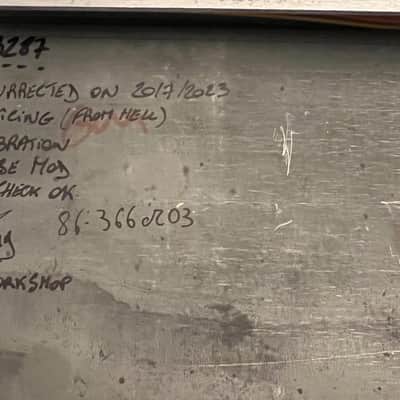 3287
URRECTED ON 20/7/2023
ICING (FROM HELL)
BRATION
BE MOD
CHECK OK
86-366
ORKSHOP